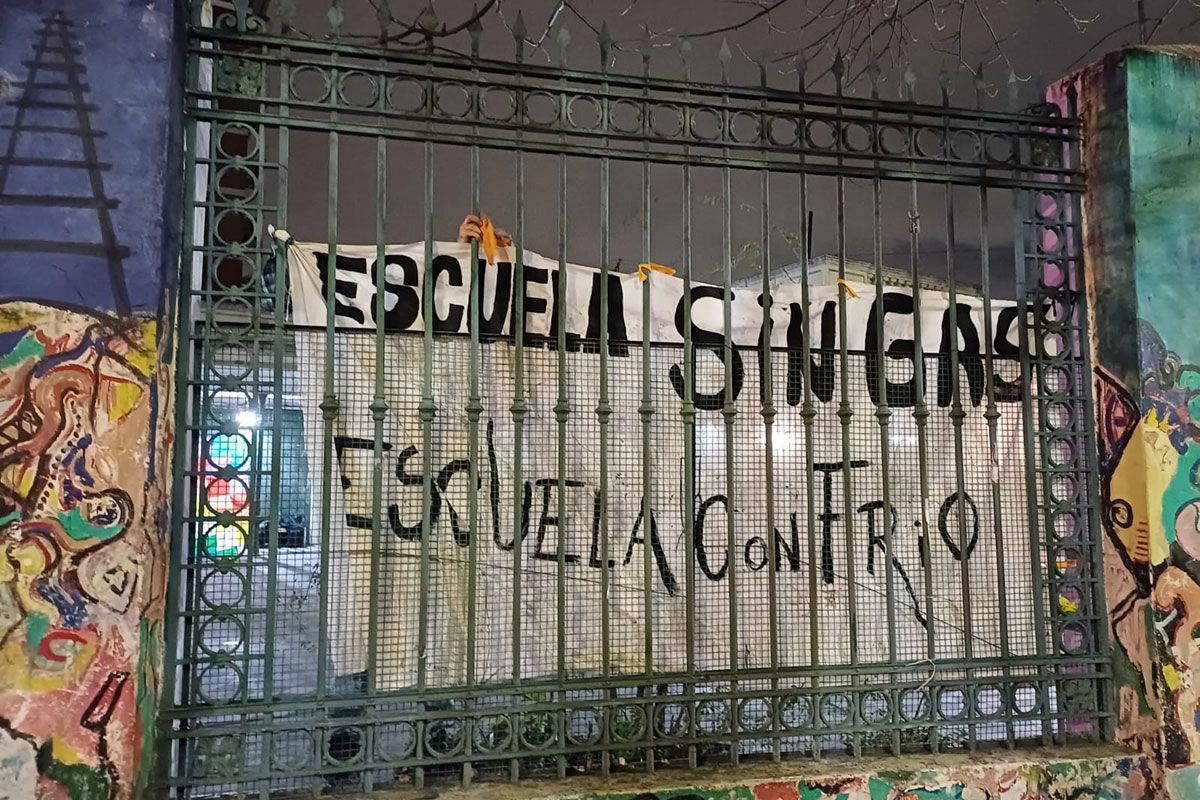 ESCUELA SiN GAS
ESCUELA CON FRiO